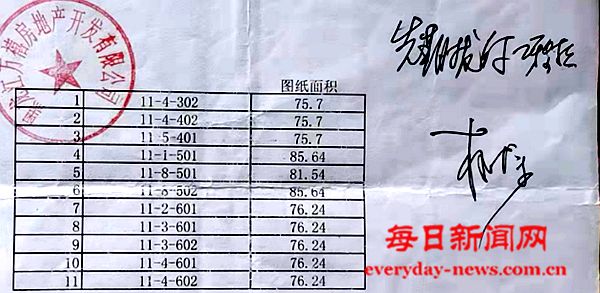 黑龙江万禧房地产开发有限公司
图纸面积
1 11-4-302 75.7
2 11-4-402 75.7
3 11-5-401 75.7
4 11-1-501 85.64
5 11-8-501 81.54
6 11-8-502 85.64
7 11-2-601 76.24
8 11-3-601 76.24
9 11-3-602 76.24
10 11-4-601 76.24
11 11-4-602 76.24
每日新闻网
everyday-news.com.cn